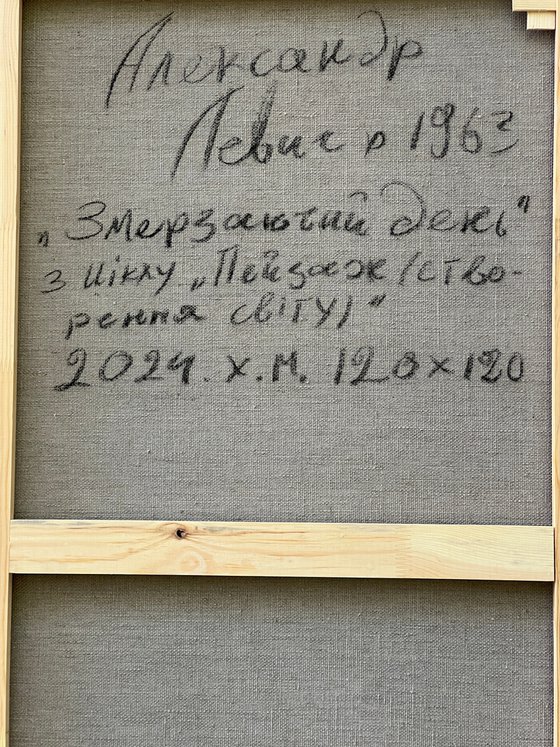 Александр
Левич р 1963
„Змерзаючий день"
з циклу „Пейзаж /ство-
рення світу/"
2024. х.м. 120х120